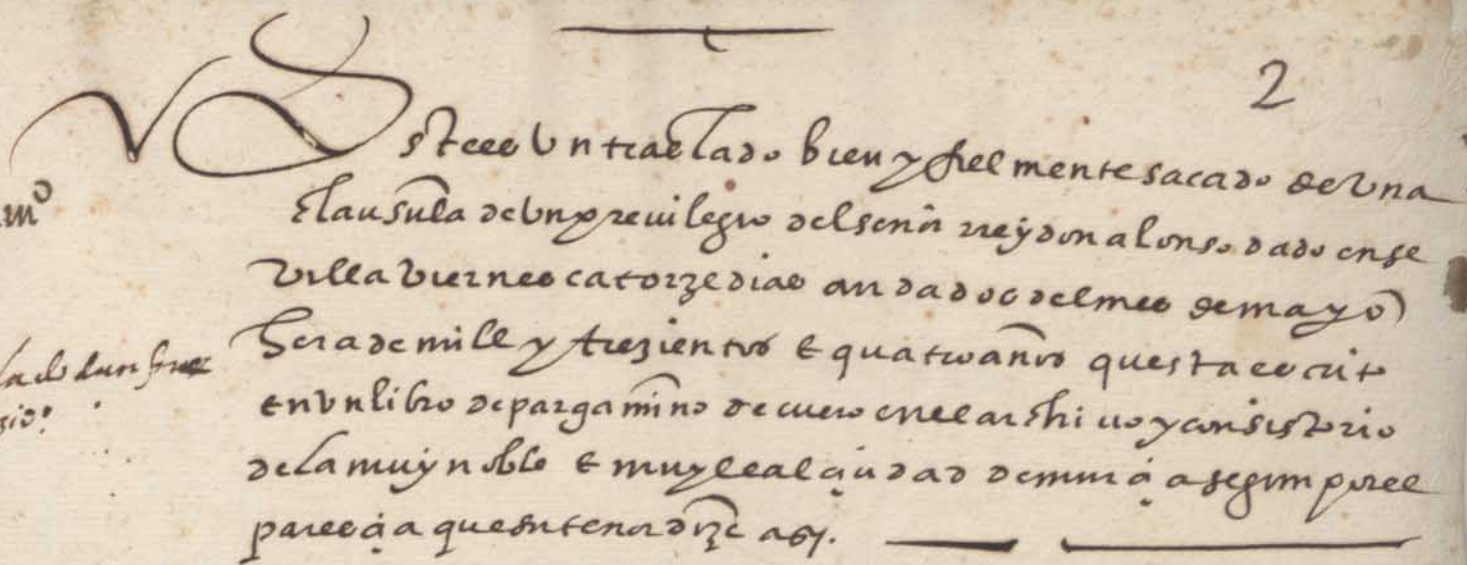 2
Este es Vn traslado bien y fielmente sacado de Vna
clausula de Vn previlegio del señor rrey don alonso dado en se
Villa Viernes catorze dias andados del mes de mayo
hera de mill y trezientos E quatro años questa escrito
en Vn libro de pargamino de cuero en el archiuo y consistorio
de la muy noble E muy leal çiudad de murçia segun por el
pareçia que su tenor dize asy.